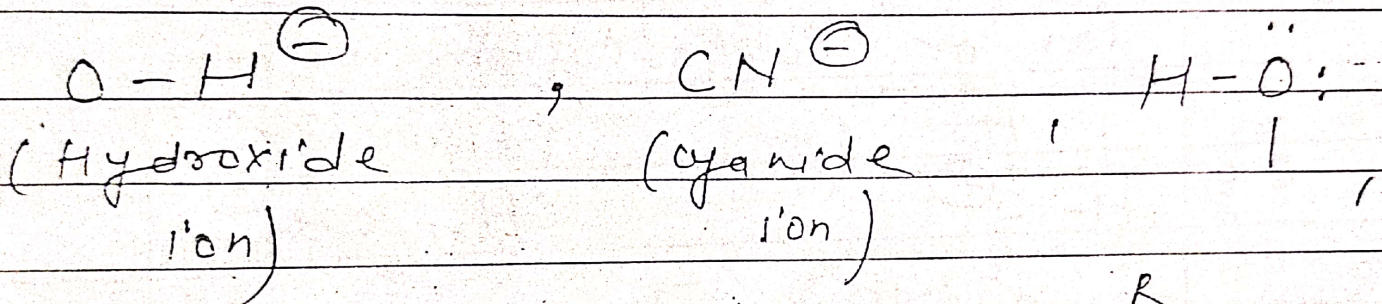 O - H ⊖ , CN ⊖ , H - Ö :
(Hydroxide ion) (cyanide ion) ,
R